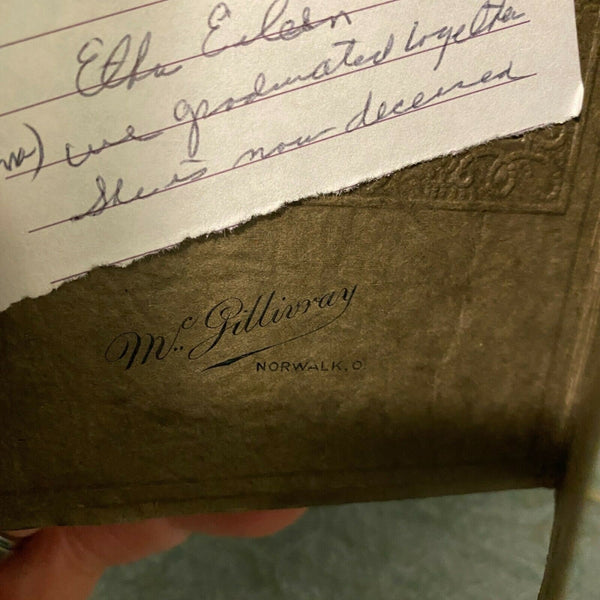 Etha Eileen
we graduated together
She is now deceased
Mc. Gillivray
NORWALK, O.